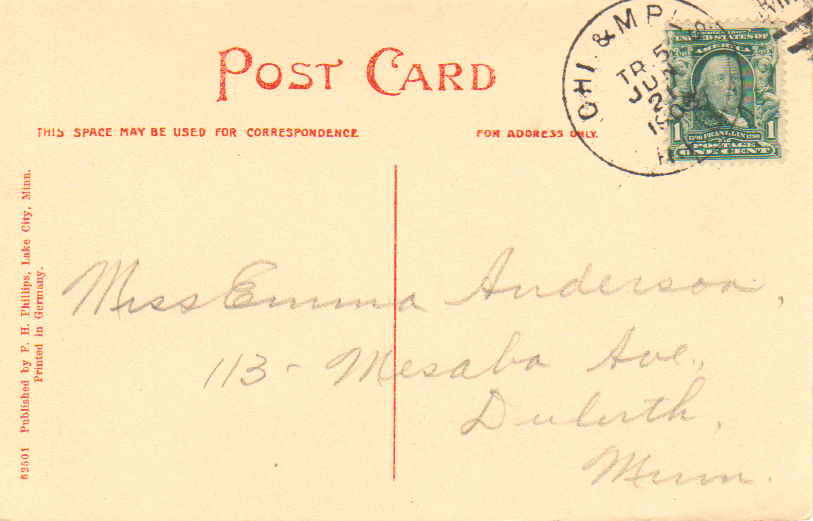 POST CARD
THIS SPACE MAY BE USED FOR CORRESPONDENCE
FOR ADDRESS ONLY.
CHI. & M P
TR. 5
JUN
21
SERIES 1902
UNITED STATES OF
AMERICA
1 FRANKLIN 1
POSTAGE
ONE CENT
Miss Emma Anderson,
113 - Mesaba Ave.,
Duluth,
Minn.
62501 Published by F. H. Phillips, Lake City, Minn.
Printed in Germany.